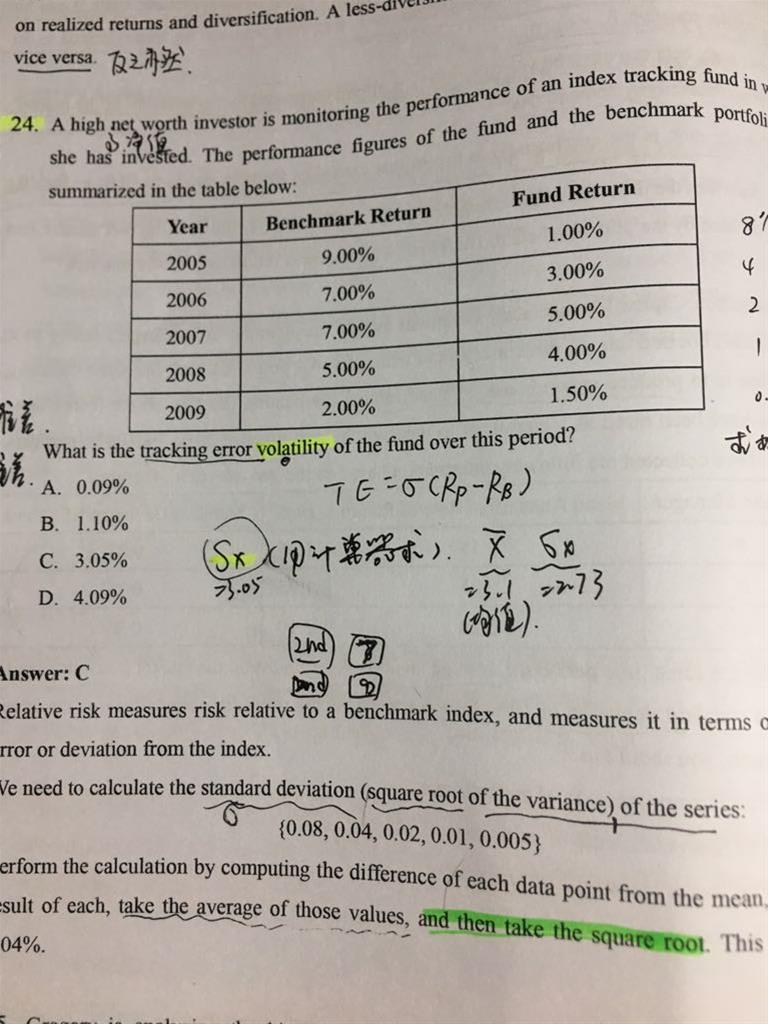 on realized returns and diversification. A
vice versa. 反之亦然.
24. A high net worth investor is monitoring the performance of an index tracking fund in
净值
she has invested. The performance figures of the fund and the benchmark
summarized in the table below:
Year Benchmark Return Fund Return
2005 9.00% 1.00% 8%
2006 7.00% 3.00% 4
2007 7.00% 5.00% 2
2008 5.00% 4.00% 1
2009 2.00% 1.50% 0.
What is the tracking error volatility of the fund over this period?
A. 0.09% TE=σ(RP-RB)
B. 1.10%
C. 3.05% Sx (计算器求). X̄ σx
=3.05 =3.1 =2.73
D. 4.09% (均值).
2nd 7
2nd 8
Answer: C
Relative risk measures risk relative to a benchmark index, and measures it in terms
error or deviation from the index.
We need to calculate the standard deviation (square root of the variance) of the series:
σ
{0.08, 0.04, 0.02, 0.01, 0.005}
erform the calculation by computing the difference of each data point from the mean,
esult of each, take the average of those values, and then take the square root. This
04%.